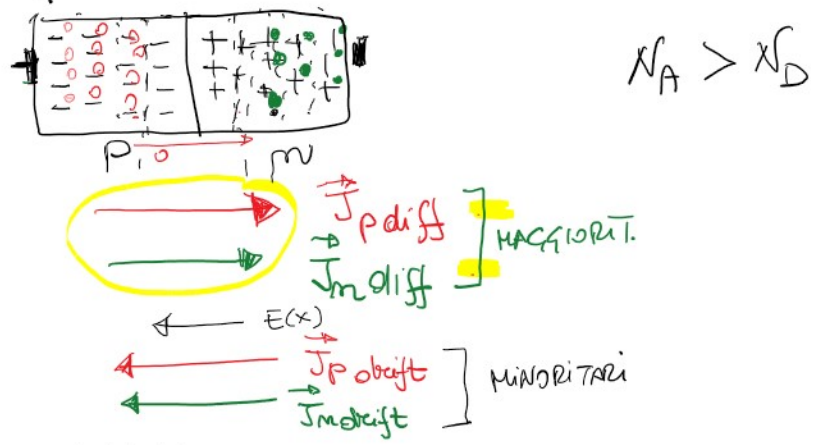 N_A > N_D
P n
J_p diff
J_n diff
MAGGIORIT.
E(x)
J_p drift
J_n drift
MINORITARI